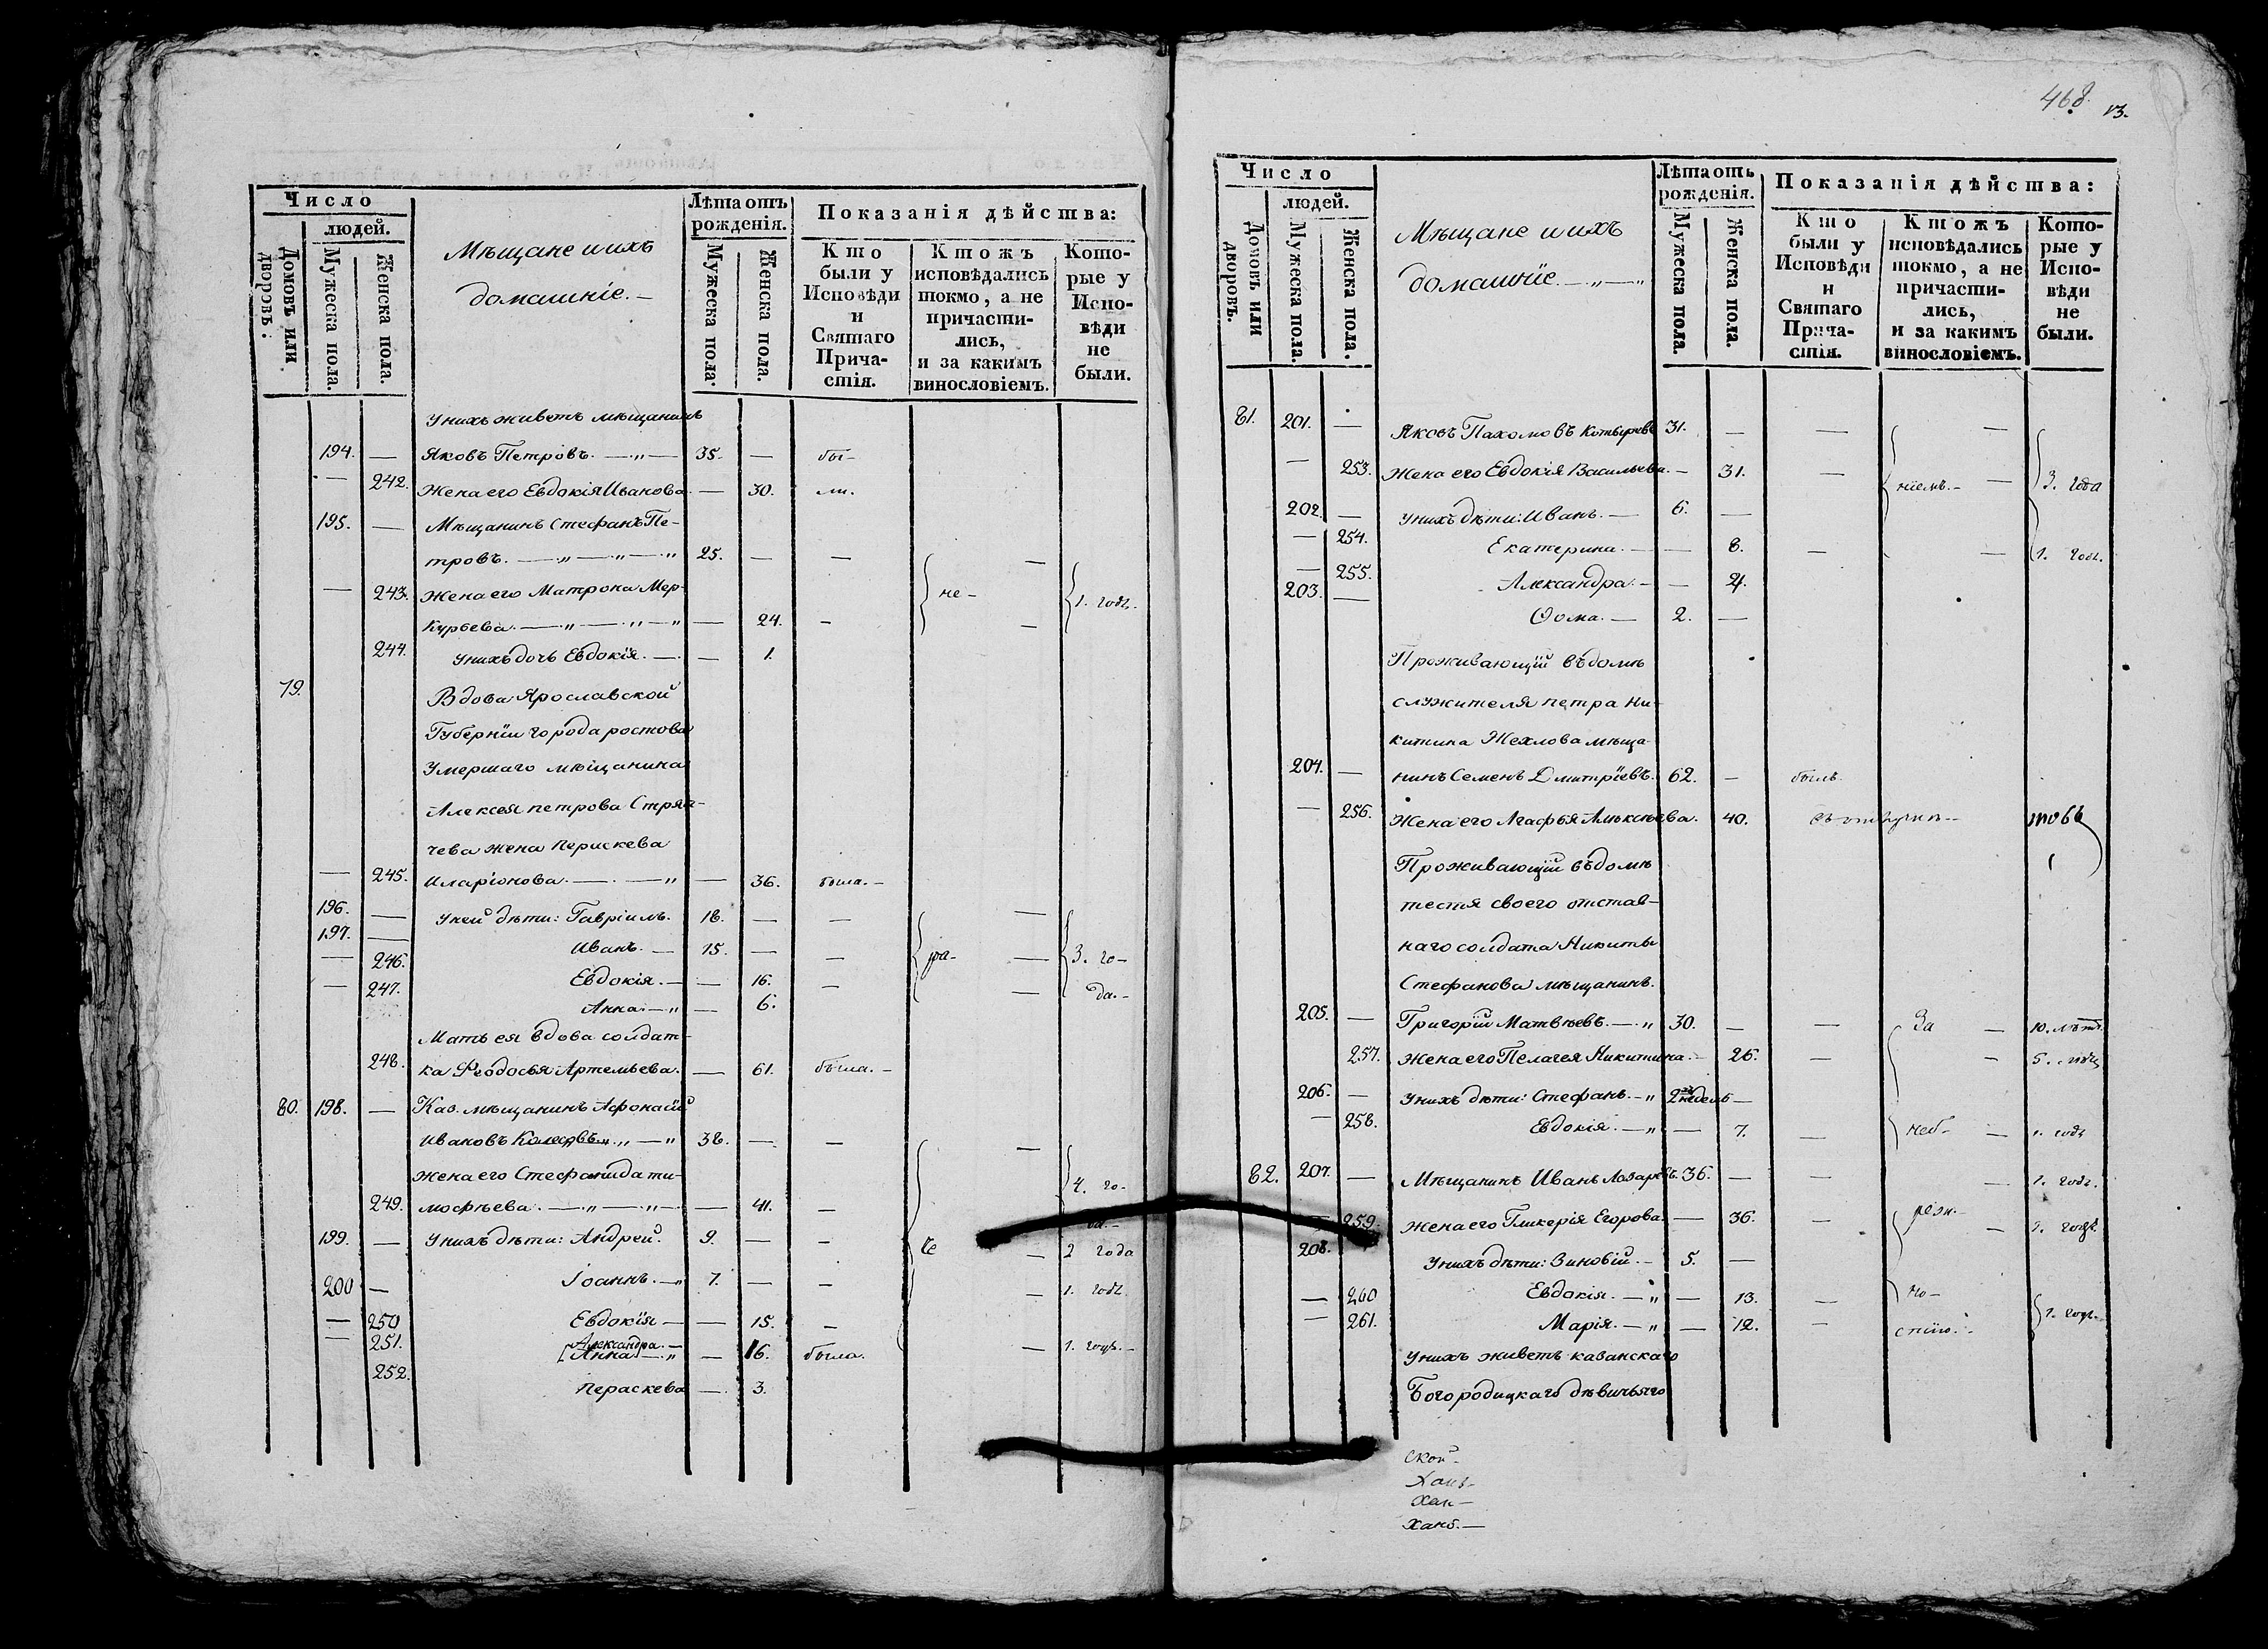 Число
людей.
Домовъ или дворовъ.
Мужеска пола.
Женска пола.
Мѣщане и ихъ
домашніе.—
Лѣта отъ
рожденія.
Мужеска пола.
Женска пола.
Показанія дѣйства:
Кто были у Исповѣди и Святаго Причастія.
Ктожъ исповѣдались токмо, а не причастились, и за какимъ винословіемъ.
Которые у Исповѣди не были.
У нихъ живетъ мѣщанинъ
194. — Яковъ Петровъ. — 35. — бы-
— 242. Жена его Евдокія Иванова. — 30. ли.
195. — Мѣщанинъ Стефанъ Пе-
тровъ. — 25. — — —
— 243. Жена его Матрона Мер- не- 1. годъ.
курьева. — — 24. - —
244. У нихъ дочь Евдокія. — — 1.
79. Вдова Ярославской
Губерніи города ростова
Умершаго мѣщанина
Алексея петрова Стряп-
чева жена Параскева
— 245. Иларіонова. — — 36. была.—
196. — У ней дѣти: Гавріилъ. 18. — — —
197. — Иванъ. — 15. — — ра- — 3. го-
— 246. Евдокія. — — 16. — — да.-
— 247. Анна — — 6.
Мать ея вдова солдат-
248. ка Феодосья Артемьева. — 61. была.—
80. 198. — Каз. мѣщанинъ Афонасій
Ивановъ 38. — — —
Жена его Стефанида ти- 4. го-
249. мофѣева. — — 41. — да.-
199. — У нихъ дѣти: Андрей. 9. — — че — 2 года
200 — Іоаннъ. — 7. — — — 1. годъ.
— 250 Евдокія — — 15. —
— 251. Александра. —
Анна — — 16. была. — 1. годъ.—
252. Параскева — 3.
468. 13.
Число
людей.
Домовъ или дворовъ.
Мужеска пола.
Женска пола.
Мѣщане и ихъ
домашніе.—
Лѣта отъ
рожденія.
Мужеска пола.
Женска пола.
Показанія дѣйства:
Кто были у Исповѣди и Святаго Причастія.
Ктожъ исповѣдались токмо, а не причастились, и за какимъ винословіемъ.
Которые у Исповѣди не были.
81. 201. — Яковъ Пахомовъ 31. — — —
— 253. Жена его Евдокія Васильева. — 31. — ніемъ.- — 3. года
202. — У нихъ дѣти: Иванъ. — 6. —
— 254. Екатерина. — — 8. — — 1. годъ.
— 255. Александра. — — 4.
203. — Ѳома. — 2. —
Проживающій въ домѣ
служителя петра Ни-
китина Жехлова мѣща-
204. — нинъ Семенъ Дмитріевъ. 62. — былъ.
— 256. Жена его Агафья Алексѣева. 40.
Проживающій въ домѣ
тестя своего отстав-
наго солдата Никиты
Стефанова мѣщанинъ.
205. — Григорій Матвѣевъ. — 30. — — За — 10. лѣтъ.
257. Жена его Пелагея Никитина. — 26. — — 5. лѣтъ
206. — У нихъ дѣти: Стефанъ. — 2 недель —
— 258. Евдокія. — — 7. — неб- — 1. годъ
82. 207. — Мѣщанинъ Иванъ Лазаревъ. 36. — — — 1. годъ.
— 259. Жена его Гликерія Егорова. — 36. — реж.- — 1. годъ.
208. У нихъ дѣти: Зиновій. — 5. —
— 260 Евдокія. — — 13. — но-
— 261. Марія. — — 12. — стію.- 1. годъ.—
У нихъ живетъ казанскаго
Богородицкаго дѣвичьяго
ской-